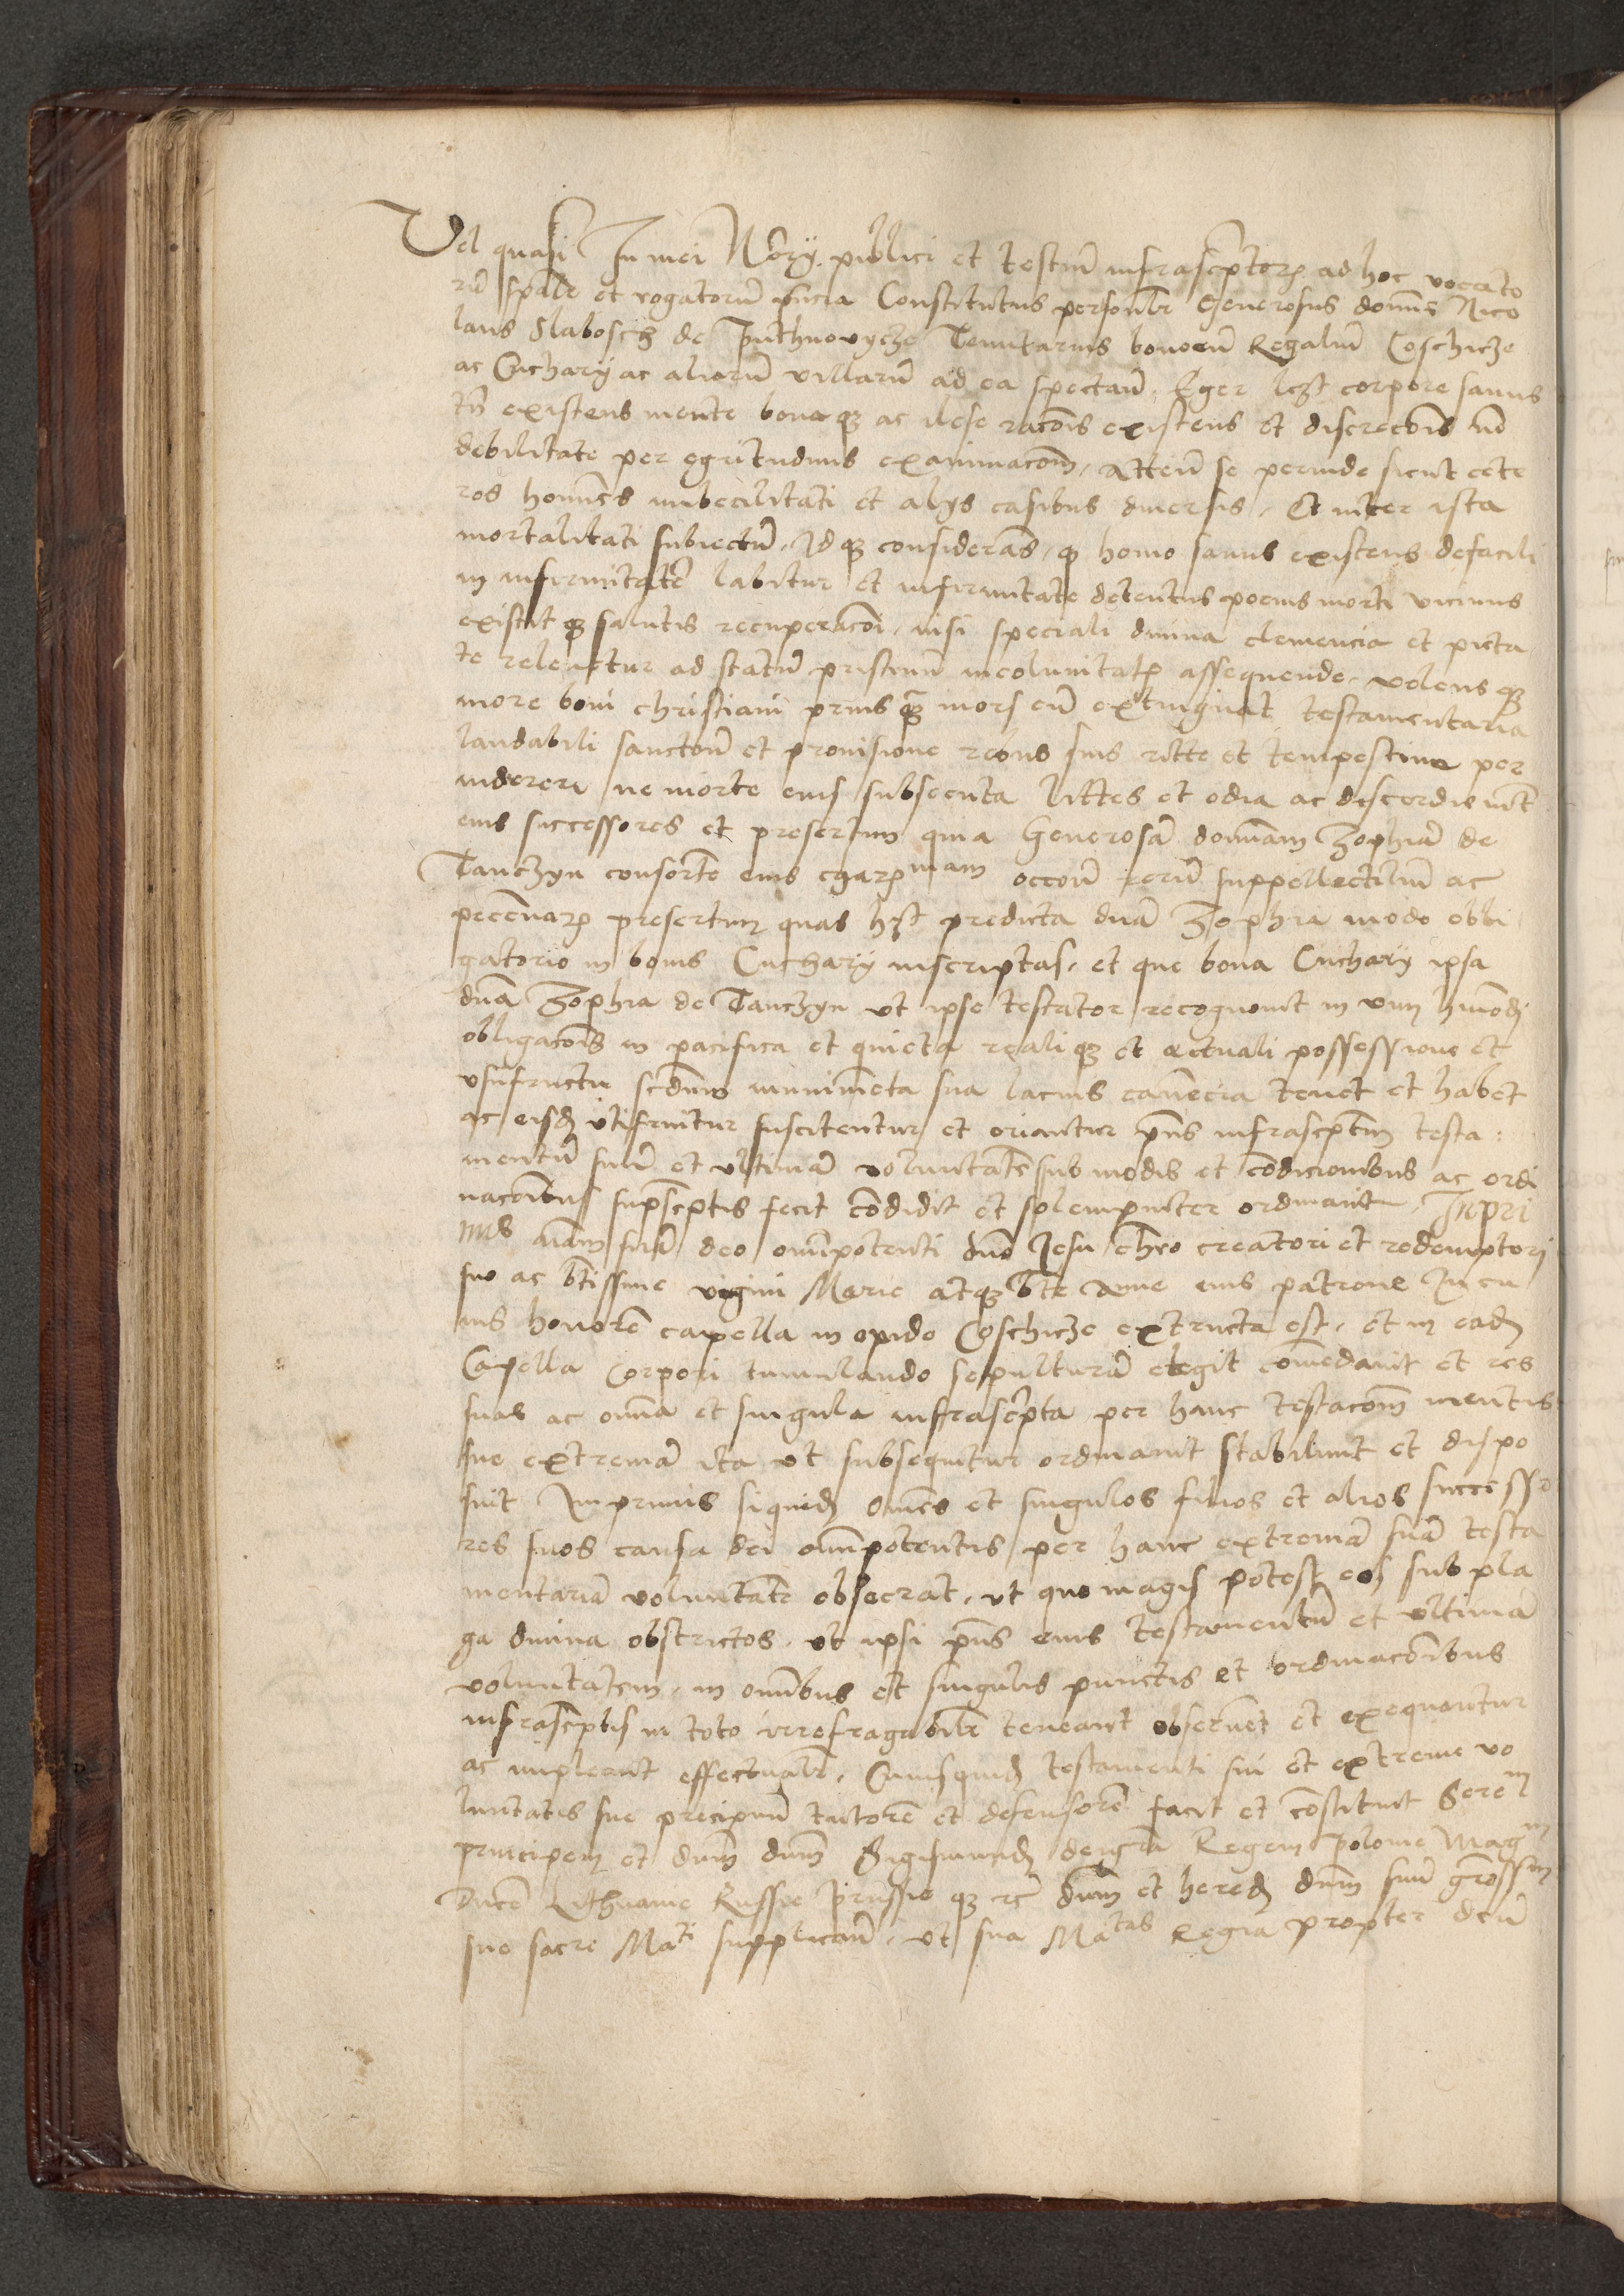 Vel quasi In mei Nōry publici et testiū infrascptorꝝ ad hoc vocato
rū spālr et rogatorū pñcia Constitutus personlr Generosus domūs Nico
laus Slabosch de Puthnovycze Tenutarius bonorū Regaliū Coschicze
ac Cuchary ac aliarū villarū ad ea spectañ. Eger lꝫt corpore sanus
tñ existens mente bonaqꝫ ac ilese racōis existens et discrecōis nō
debilitate per egritudinis exanimacōm, attenū se perinde sicut cete
ros homīes imbecilitati et alys casibus diuersis. Et inter ista
mortalitati subiectū. Idqꝫ considerās, qꝫ homo sanus existens defacili
in infirmitatē labitur et infirmitate detentus pocius morti vicinus
existit qꝫ salutis recuperacōi, nisi speciali diuina clemencia et pieta
te releuetur ad statū pristinū incolumitatꝭ assequende. volensqꝫ
more boni christiani priusqꝫ mors eū extinguat testamentaria
laudabili sanctōne et prouisione rebus suis ritte et tempestiue per
uiderere ne morte eius subsecuta littes et odia ac discordie intʳ
eius successores et presertim quia Generosā domīam Zophiā de
Tanczyn consortē eius charꝫmam occōne rerū suppellectiliū ac
peccūiarꝫ presertim quas hꝫt predicta dn̄a Zophia modo obli
gatorio in bonis Cuchary inscriptas, et que bona Cuchary ipsa
dn̄a Zophia de Tanczyn vt ipse testator recognouit in vim hmōdi
obligacōis in pacifica et quieta realiqꝫ et actuali possessione et
vsufructu scdūm munimēta sua lacius canēcia tenet et habet
ac eisdꝫ vtifruitur suscitentur et oriantur pñs infrascptum testa:
mentū suū et vltimā voluntatē sub modis et cōdicionibus ac ordi
nacōibus supscptis fecit cōdidit et solempniter ordinauit. Inpri
mis aīam suā deo omīpotenti dnō Jesu chrō creatori et redemptori
suo ac btissime virgini Marie atqꝫ bte Anne eius patrone In cu
ius honorē capella in opido Coschicze extructa est, et in eadꝫ
Capella Corpori tumulando sepulturā elegit cōmēdauit et res
suas ac omīa et singula infrascripta per hanc testacōm mentis
sue extremā ita vt subsequitur ordinauit stabiliuit et dispo
suit Inprimis siquidꝫ omēs et singulos filios et alios successo
res suos causa dei omīpotentis per hanc extremā suā testa
mentariā voluntatē obsecrat, vt quo magis potest eos sub pla
ga diuina obstrictos, vt ipsi pñs eius testamentū et vltimā
voluntatem, in omībus et singulis punctis et ordinacōibus
infrascptis in toto irrefragabilr teneant obseruēt et exequantur
ac impleant effectualr. Cuiusquidꝫ testamenti sui et extreme vo
luntatis sue precipuū tutorē et defensorē facit et cōstituit Serem
principem et dnm dnm Sigismundꝫ dei grā Regem Polonie Magm
Ducē Lithuanie Russie Prussieqꝫ ec̄ dnm et heredꝫ dnm suū grōssm
sue sacre Mati supplicañ, vt sua Matas Regia propter deū